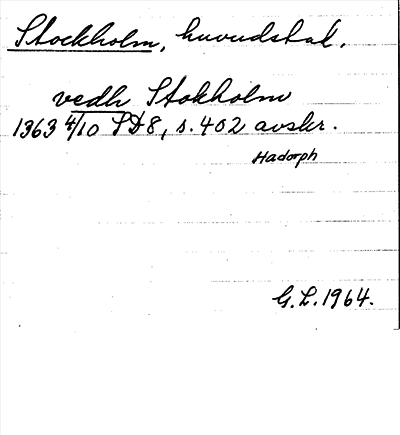 Stockholm, huvudstad.
vedh Stokholm
1363 4/10 SD8, s. 402 avskr.
Hadorph
G. L. 1964.